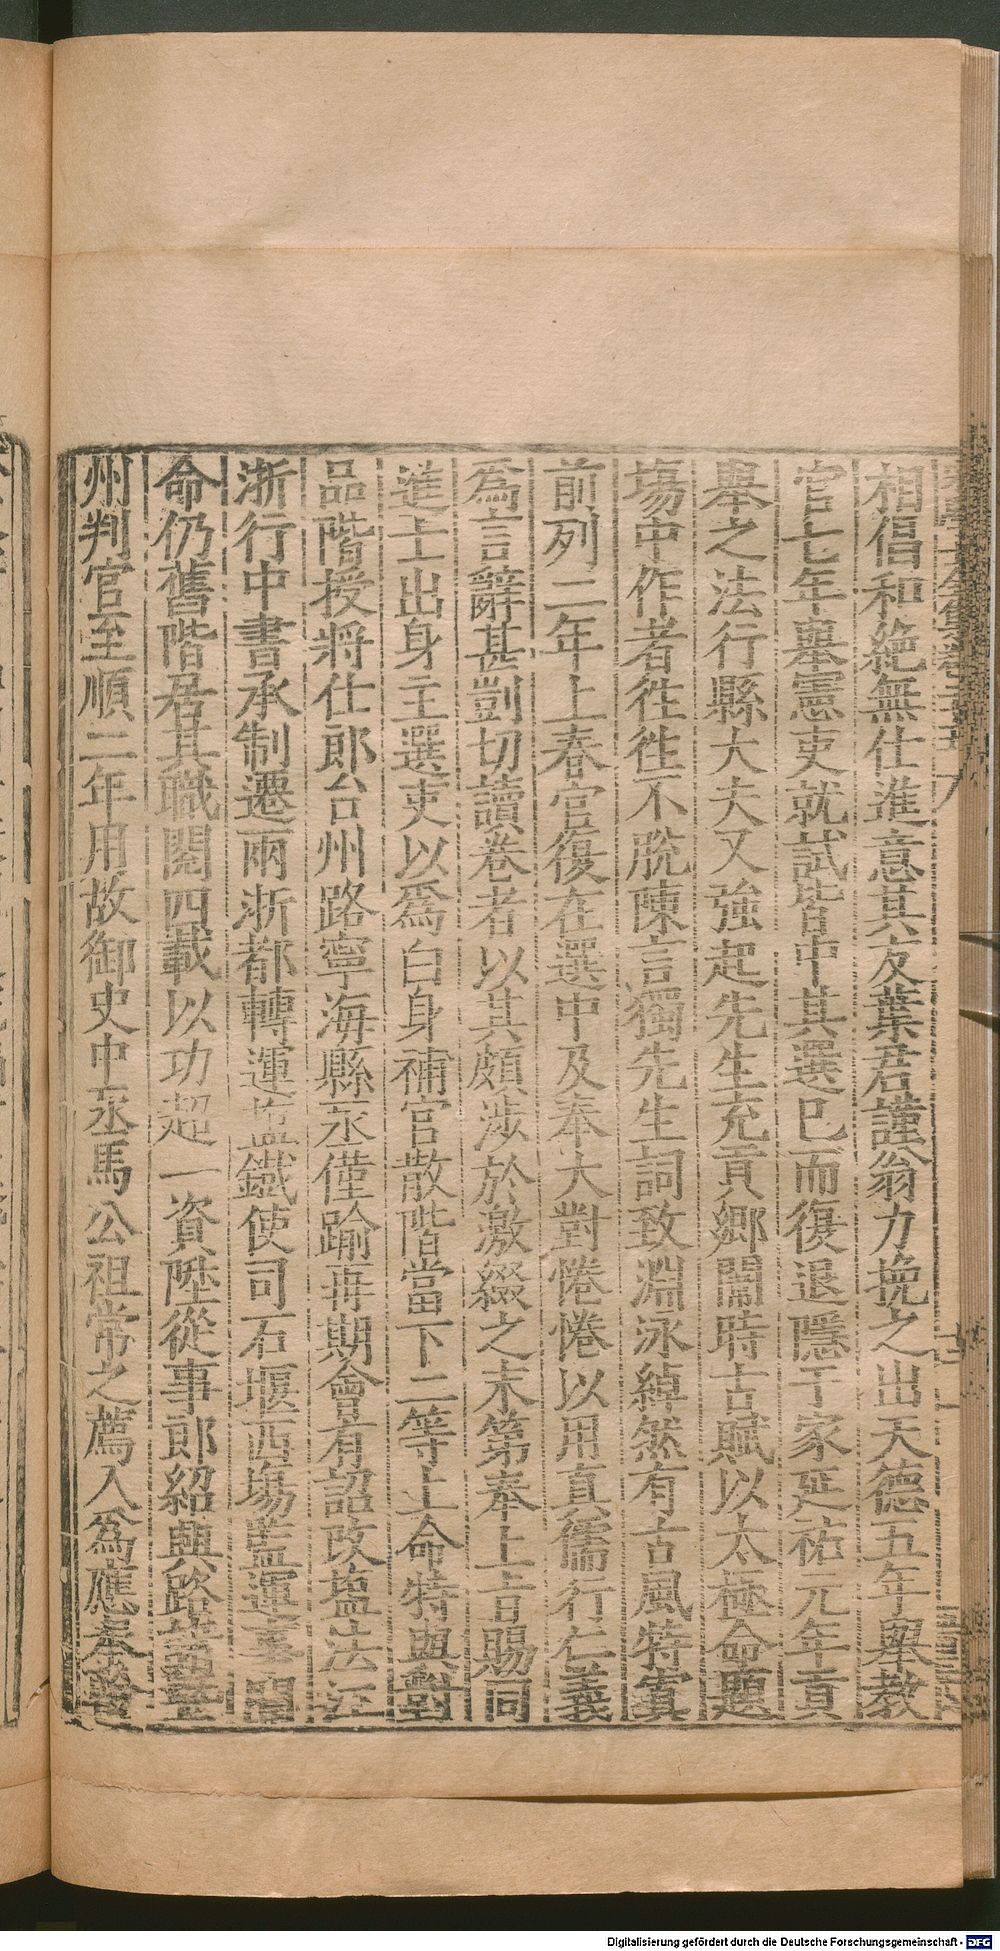 相倡和絶無仕進意其友葉君謹翁力挽之出天德五年舉教
官七年舉憲吏就試皆中其選已而復退隱于家延祐元年貢
舉之法行縣大夫又強起先生充貢鄉闈時古賦以太極命題
塲中作者徃徃不脫陳言獨先生詞致淵泳綽然有古風特寘
前列二年上春官復在選中及奉大對惓惓以用真儒行仁義
爲言辭甚剴切讀卷者以其頗涉於激綴之末第奉上旨賜同
進士出身主選吏以爲白身補官散階當下二等上命特與對
品階授將仕郎台州路寧海縣丞僅踰再期會有詔改塩法江
浙行中書承制遷兩浙都轉運塩鐵使司石堰西塲監運
命仍舊階居其職閱四載以功超一資陞從事郎紹興路
州判官至順二年用故御史中丞馬公祖常之薦入爲應奉
Digitalisierung gefördert durch die Deutsche Forschungsgemeinschaft - DFG